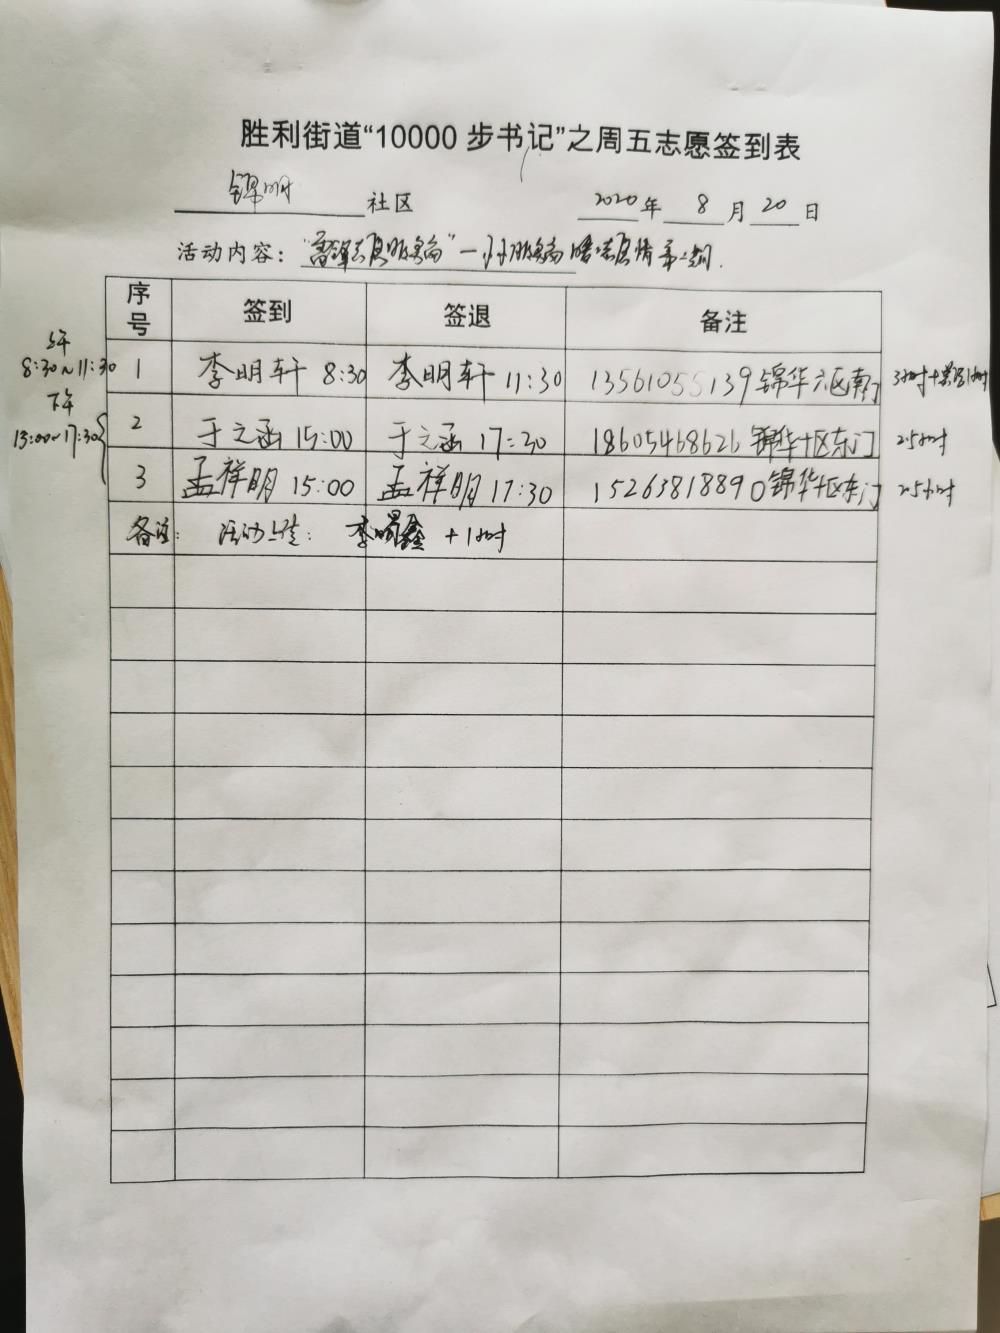 胜利街道“10000 步书记”之周五志愿签到表
锦明 社区 2020 年 8 月 20 日
活动内容：“ 志愿服务岗”一小小服务岗 情 第二期.
序号 签到 签退 备注
上午
8:30~11:30
下午
13:00~17:30
1 李明轩 8:30 李明轩 11:30 13561055139 锦华六区南门 3小时+ 1小时
2 于之涵 15:00 于之涵 17:30 18605468626 锦华十区东门 2.5小时
3 孟祥明 15:00 孟祥明 17:30 15263818890 锦华十区东门 2.5小时
备注： 活动 ： 李 鑫 +1小时